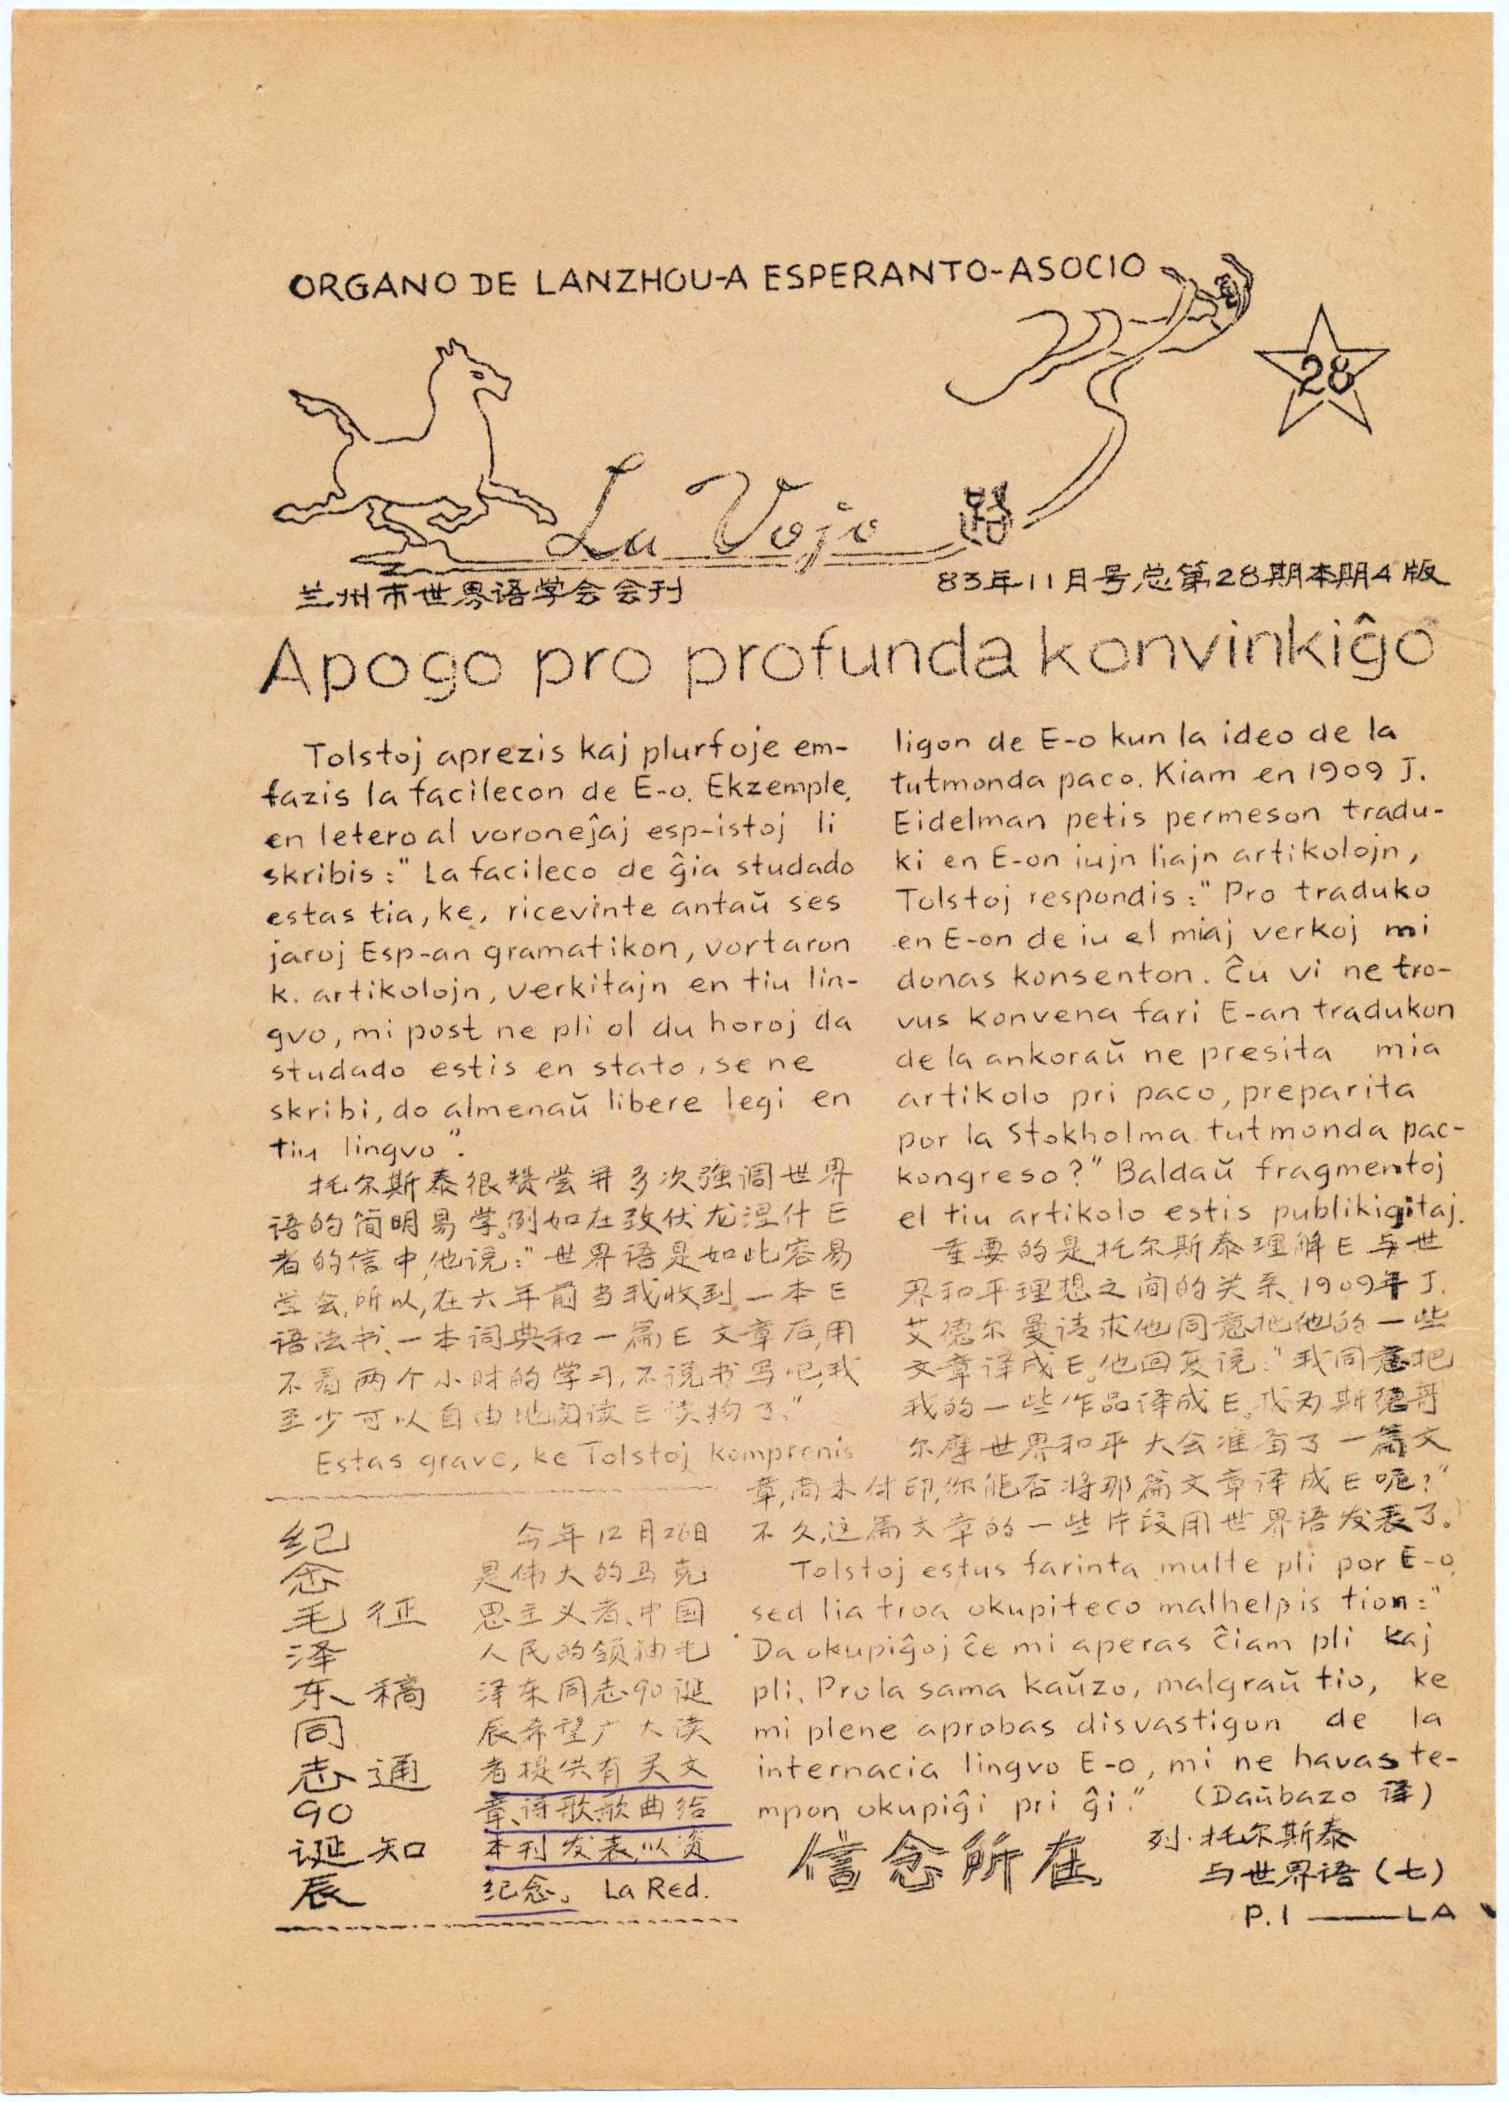 ORGANO DE LANZHOU-A ESPERANTO-ASOCIO
28
La Vojo 路
兰州市世界语学会会刊
83年11月号总第28期本期4版
Apogo pro profunda konvinkiĝo
Tolstoj aprezis kaj plurfoje em-
fazis la facilecon de E-o. Ekzemple,
en letero al voroneĵaj esp-istoj li
skribis:" La facileco de ĝia studado
estas tia, ke, ricevinte antaŭ ses
jaroj Esp-an gramatikon, vortaron
k. artikolojn, verkitajn en tiu lin-
gvo, mi post ne pli ol du horoj da
studado estis en stato, se ne
skribi, do almenaŭ libere legi en
tiu lingvo".
托尔斯泰很赞尝并多次强调世界
语的简明易学。例如在致伏龙涅什E
者的信中,他说:"世界语是如此容易
学会,所以,在六年前当我收到一本E
语法书、一本词典和一篇E文章后,用
不着两个小时的学习,不说书写吧,我
至少可以自由地阅读E读物了。"
Estas grave, ke Tolstoj komprenis
ligon de E-o kun la ideo de la
tutmonda paco. Kiam en 1909 J.
Eidelman petis permeson tradu-
ki en E-on iujn liajn artikolojn,
Tolstoj respondis:" Pro traduko
en E-on de iu el miaj verkoj mi
donas konsenton. Ĉu vi ne tro-
vus konvena fari E-an tradukon
de la ankoraŭ ne presita mia
artikolo pri paco, preparita
por la Stokholma tutmonda pac-
kongreso?" Baldaŭ fragmentoj
el tiu artikolo estis publikigitaj.
重要的是托尔斯泰理解E与世
界和平理想之间的关系。1909年J.
艾德尔曼请求他同意把他的一些
文章译成E。他回复说:"我同意把
我的一些作品译成E。我为斯德哥
尔摩世界和平大会准备了一篇文
章,尚未付印,你能否将那篇文章译成E呢?"
不久,这篇文章的一些片段用世界语发表了。
Tolstoj estus farinta multe pli por E-o,
sed lia troa okupiteco malhelpis tion:"
Da okupiĝoj ĉe mi aperas ĉiam pli kaj
pli. Pro la sama kaŭzo, malgraŭ tio, ke
mi plene aprobas disvastigon de la
internacia lingvo E-o, mi ne havas te-
mpon okupiĝi pri ĝi." (Daŭbazo 译)
信念所在
列·托尔斯泰
与世界语(七)
P.1 ——LA
纪念毛泽东同志90诞辰
征稿通知
今年12月26日
是伟大的马克
思主义者、中国
人民的领袖毛
泽东同志90诞
辰希望广大读
者提供有关文
章、诗歌,歌曲给
本刊发表,以资
纪念。 La Red.